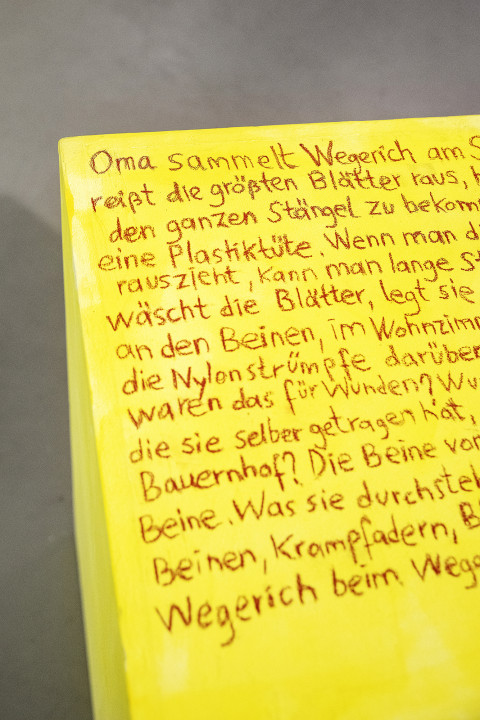 Oma sammelt Wegerich am S
reißt die größten Blätter raus,
den ganzen Stängel zu bekom
eine Plastiktüte. Wenn man d
rauszieht, kann man lange S
wäscht die Blätter, legt sie
an den Beinen, im Wohnzim
die Nylonstrümpfe darüber
waren das für Wunden? Wu
die sie selber getragen hat,
Bauernhof? Die Beine vo
Beine. Was sie durchste
Beinen, Krampfadern, B
Wegerich beim Wege